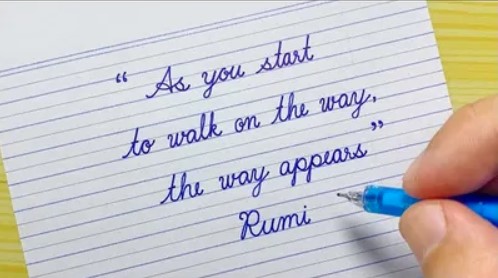 “ As you start
to walk on the way,
the way appears”
Rumi